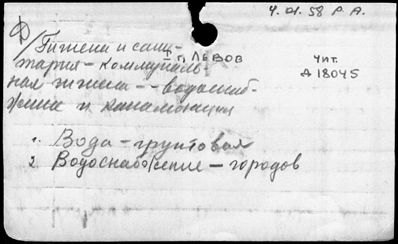 4.01.58 Р.А.
Ф/ Гигиена и сани-
тария - коммуналь-
ная гигиена - - водоснаб-
жение и канализация
I г. Львов
Чит.
Д 18045
1. Вода - грунтовая
2. Водоснабжение - городов